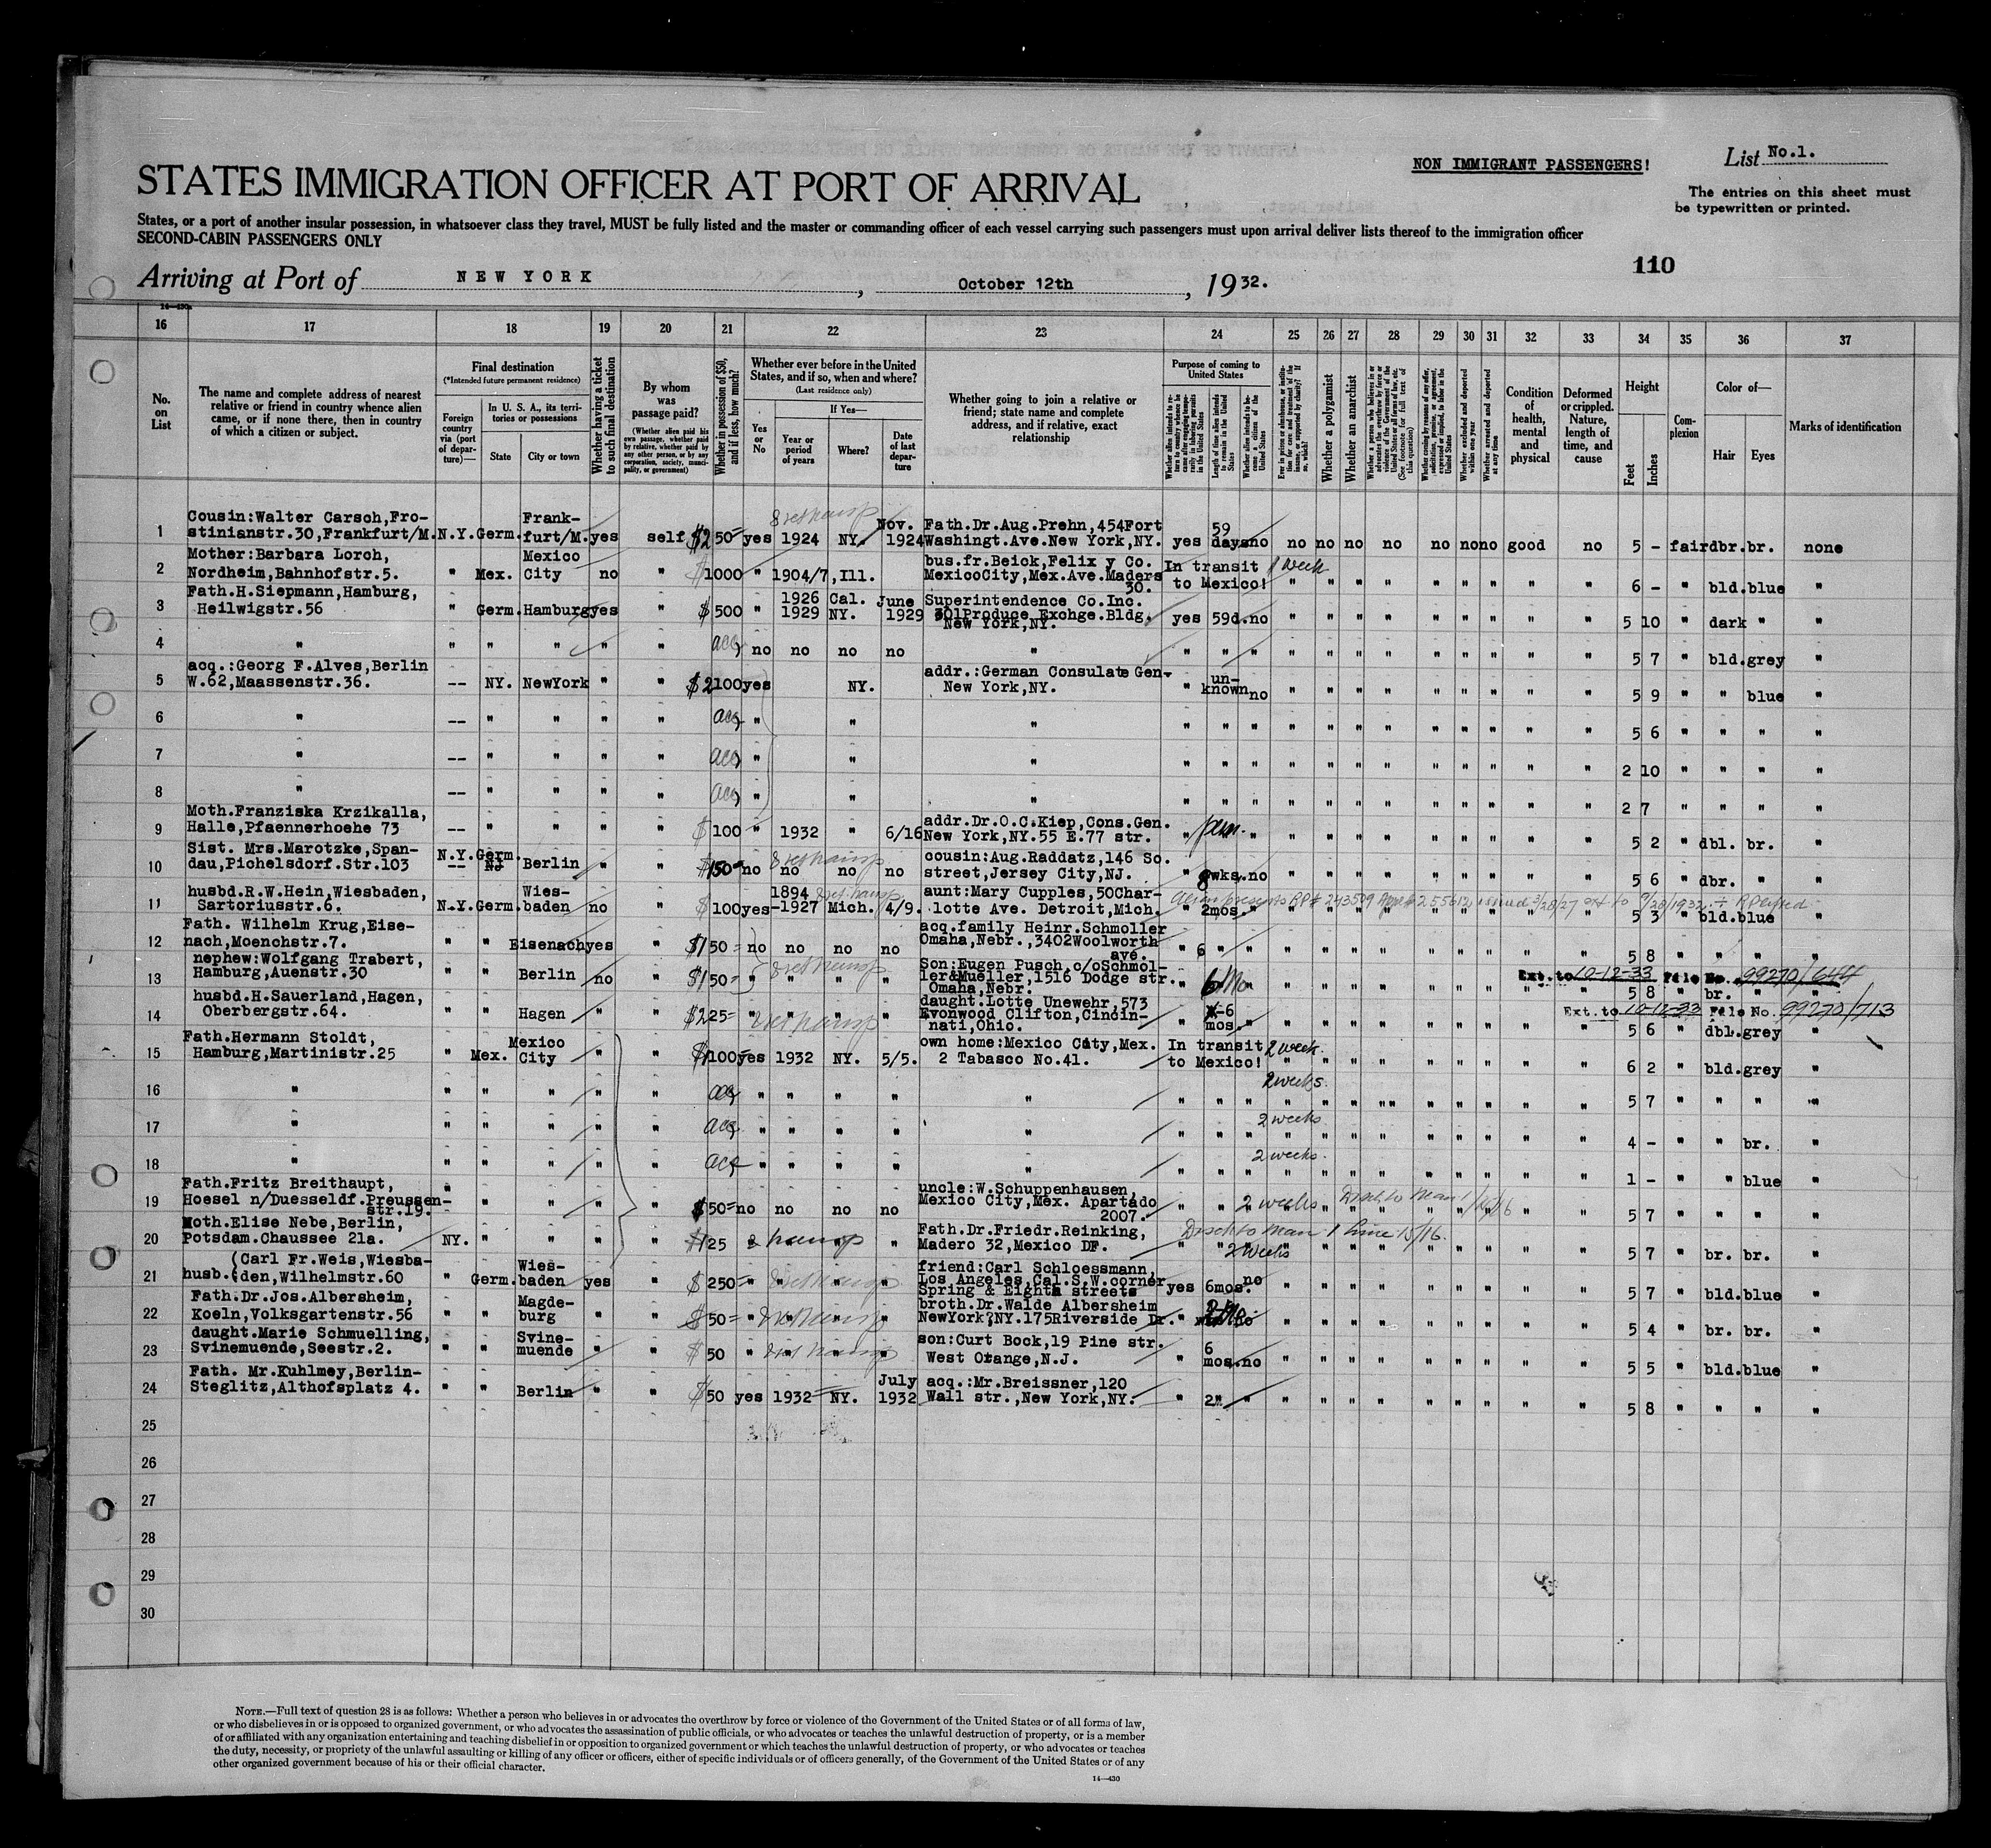 NON IMMIGRANT PASSENGERS!
List No.1.
STATES IMMIGRATION OFFICER AT PORT OF ARRIVAL
The entries on this sheet must
be typewritten or printed.
States, or a port of another insular possession, in whatsoever class they travel, MUST be fully listed and the master or commanding officer of each vessel carrying such passengers must upon arrival deliver lists thereof to the immigration officer
SECOND-CABIN PASSENGERS ONLY
110
Arriving at Port of NEW YORK, October 12th, 1932.
14—430
16 17 18 19 20 21 22 23 24 25 26 27 28 29 30 31 32 33 34 35 36 37
No. on List
The name and complete address of nearest
relative or friend in country whence alien
came, or if none there, then in country
of which a citizen or subject.
Final destination
(*Intended future permanent residence)
Foreign country via (port of departure)—
In U. S. A., its territories or possessions
State
City or town
Whether having a ticket to such final destination
By whom was passage paid?
(Whether alien paid his own passage, whether paid by relative, whether paid by any other person, or by any corporation, society, municipality, or government)
Whether in possession of $50, and if less, how much?
Whether ever before in the United States, and if so, when and where?
(Last residence only)
Yes or No
If Yes—
Year or period of years
Where?
Date of last departure
Whether going to join a relative or
friend; state name and complete
address, and if relative, exact
relationship
Purpose of coming to United States
Length of time alien intends to remain in the United States
Whether alien intends to become a citizen of the United States
Whether a polygamist
Whether an anarchist
Whether excluded and deported within one year
Whether arrested and deported at any time
Condition of health, mental and physical
Deformed or crippled. Nature, length of time, and cause
Height
Feet
Inches
Complexion
Color of—
Hair
Eyes
Marks of identification
1 Cousin:Walter Carsch,Fro-
stinianstr.30,Frankfurt/M. N.Y. Germ. Frank-
furt/M. yes self $250 yes 1924 NY. Nov. 1924 Fath.Dr.Aug.Prehn,454Fort
Washingt.Ave.New York,NY. yes 59 days no no no no no no no no good no 5 - fair dbr. br. none
2 Mother:Barbara Lorch,
Nordheim,Bahnhofstr.5. " Mex. Mexico
City no " $1000 " 1904/7,Ill. bus.fr.Beick,Felix y Co.
MexicoCity,Mex.Ave.Madero
30. In transit
to Mexico! 1 week " " " " " " " " " 6 - " bld. blue "
3 Fath.H.Siepmann,Hamburg,
Heilwigstr.56 " Germ. Hamburg yes " $500 " 1926 Cal.
1929 NY. June
1929 Superintendence Co.Inc.
301Produce Exchge.Bldg.
New York,NY. yes 59d. no " " " " " " " " " 5 10 " dark " "
4 " " " " " " acc no no no no " " " " " " " " " " " " " 5 7 " bld. grey "
5 acq.:Georg F.Alves,Berlin
W.62,Maassenstr.36. -- NY. NewYork " " $2100 yes NY. addr.:German Consulate Gen-
New York,NY. " un-
known no " " " " " " " " " 5 9 " " blue "
6 " -- " " " " acc " " " " " " " " " " " " " " " 5 6 " " " "
7 " -- " " " " acc " " " " " " " " " " " " " " " 2 10 " " " "
8 " -- " " " " acc " " " " " " " " " " " " " " " 2 7 " " " "
9 Moth.Franziska Krzikalla,
Halle,Pfaennerhoehe 73 -- " " " " $100 " 1932 " 6/16 addr.Dr.O.C.Kiep,Cons.Gen.
New York,NY.55 E.77 str. " perm. " " " " " " " " " " 5 2 " dbl. br. "
10 Sist. Mrs.Marotzke,Span-
dau,Pichelsdorf.Str.103 N.Y. Germ. Berlin " " $150 no no no no cousin:Aug.Raddatz,146 So.
street,Jersey City,NJ. " 8wks. no " " " " " " " " " 5 6 " dbr. " "
11 husbd.R.W.Hein,Wiesbaden,
Sartoriusstr.6. N.Y. Germ. Wies-
baden no " $100 yes 1894
-1927 Mich. 4/9. aunt:Mary Cupples,50Char-
lotte Ave. Detroit,Mich. " 2mos. " 5 3 " bld. blue "
12 Fath. Wilhelm Krug,Eise-
nach,Moenchstr.7. " " Eisenach yes " $150 no no no no acq.family Heinr.Schmoller
Omaha,Nebr.,3402Woolworth
ave. " 6 " " " " " " " " " " " 5 8 " " " "
Ext. to 10-12-33 File No. 99270/644
13 nephew:Wolfgang Trabert,
Hamburg,Auenstr.30 " " Berlin no " $150 " " " " Son:Eugen Pusch,c/oSchmol-
ler&Mueller,1516 Dodge str.
Omaha,Nebr. " 6 Mo " " " " " " " " " " 5 8 " br. " "
Ext. to 10-12-33 File No. 99270/713
14 husbd.H.Sauerland,Hagen,
Oberbergstr.64. " " Hagen " " $225 " daught:Lotte Unewehr,573
Evonwood Clifton,Cincin-
nati,Ohio. " 6
mos. " " " " " " " " " " 5 6 " dbl. grey "
15 Fath.Hermann Stoldt,
Hamburg,Martinistr.25 " Mex. Mexico
City " " $1100 yes 1932 NY. 5/5. own home:Mexico City,Mex.
2 Tabasco No.41. In transit
to Mexico! 2 week. " " " " " " " " " 6 2 " bld. grey "
16 " " " " " " acc " " " " " " " " 2 weeks. " " " " " " " " " 5 7 " " " "
17 " " " " " " acc " " " " " " " " 2 weeks " " " " " " " " " 4 - " " br. "
18 " " " " " " acc " " " " " " " " 2 weeks. " " " " " " " " " 1 - " " blue "
19 Fath.Fritz Breithaupt,
Hoesel n/Duesseldf.Preussen-
str.19. " " " " " $50 no no no no uncle:W.Schuppenhausen,
Mexico City,Mex. Apartado
2007. " " 2 weeks " " " " " " " " " 5 7 " " " "
20 Moth.Elise Nebe,Berlin,
Potsdam.Chaussee 21a. NY. " " " " $125 " " " " Fath.Dr.Friedr.Reinking,
Madero 32,Mexico DF. " 2 weeks " " " " " " " " " 5 7 " br. br. "
21 husb.(Carl Fr.Weis,Wiesba-
den,Wilhelmstr.60 " Germ. Wies-
baden yes " $250 " " " " friend:Carl Schloessmann,
Los Angeles,Cal.S.W.corner
Spring & Eighth streets yes 6mos. no " " " " " " " " " 5 7 " bld. blue "
22 Fath.Dr.Jos.Albersheim,
Koeln,Volksgartenstr.56 " " Magde-
burg " " $50 " " " " broth.Dr.Walde Albersheim
NewYork,NY.175Riverside Dr. " 2 Mo. " " " " " " " " " 5 4 " br. br. "
23 daught.Marie Schmuelling,
Svinemuende,Seestr.2. " " Svine-
muende " " $50 " " " " son:Curt Bock,19 Pine str.
West Orange,N.J. " 6
mos. no " " " " " " " " " 5 5 " bld. blue "
24 Fath. Mr.Kuhlmey,Berlin-
Steglitz,Althofsplatz 4. " " Berlin " " $50 yes 1932 NY. July
1932 acq.:Mr.Breissner,120
Wall str.,New York,NY. " 2" " " " " " " " " " " 5 8 " " " "
25
26
27
28
29
30
NOTE.—Full text of question 28 is as follows: Whether a person who believes in or advocates the overthrow by force or violence of the Government of the United States or of all forms of law,
or who disbelieves in or is opposed to organized government, or who advocates the assassination of public officials, or who advocates or teaches the unlawful destruction of property, or is a member
of or affiliated with any organization entertaining and teaching disbelief in or opposition to organized government or which teaches the unlawful destruction of property, or who advocates or teaches
the duty, necessity, or propriety of the unlawful assaulting or killing of any officer or officers, either of specific individuals or of officers generally, of the Government of the United States or of any
other organized government because of his or their official character.
14—430